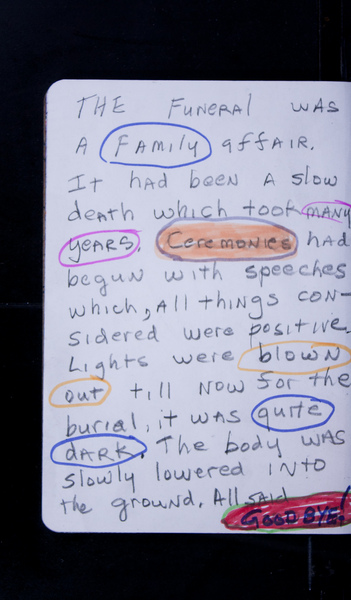 THE FUNERAL WAS
A FAMily affair.
It had been a slow
death which took MANY
years. Ceremonies had
begun with speeches
which, all things con-
sidered were positive.
Lights were blown
out till now for the
burial, it was quite
dark. The body was
slowly lowered into
the ground. All said
GOODBYE!